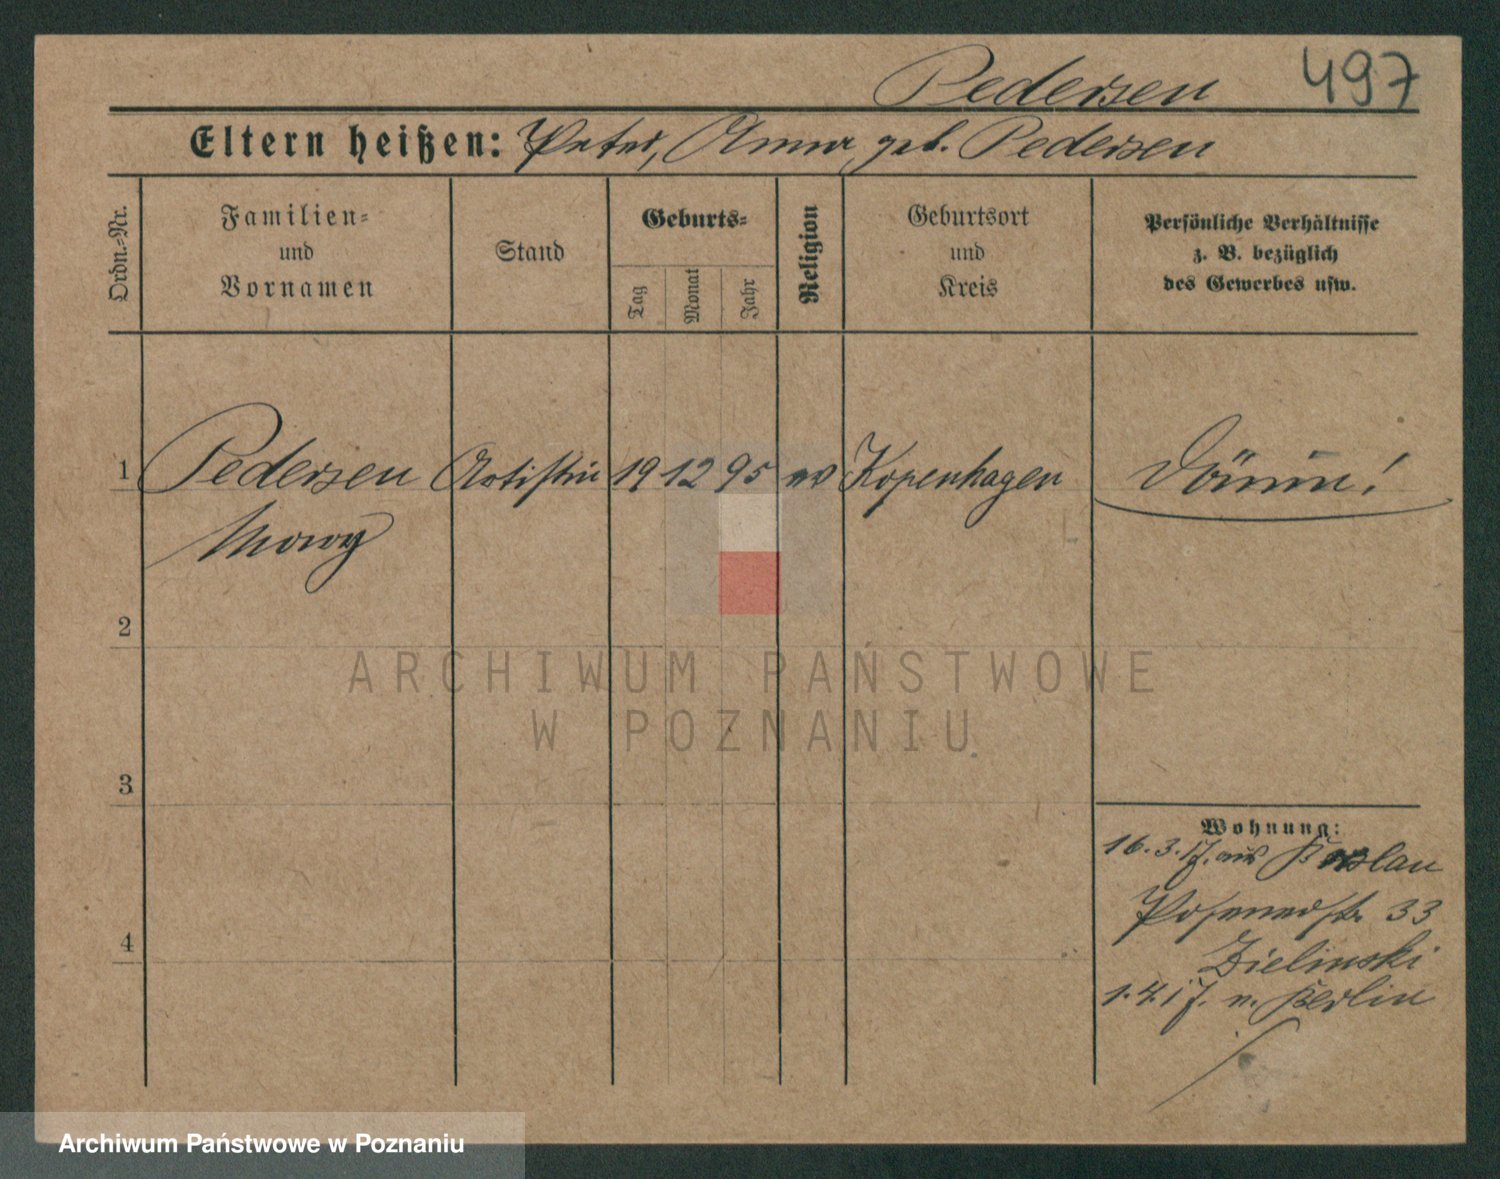 Pedersen 497
Eltern heißen: Peter, Anna, geb. Pedersen
Ordn.-Nr.
Familien-
und
Vornamen
Stand
Geburts-
Tag
Monat
Jahr
Religion
Geburtsort
und
Kreis
Persönliche Verhältnisse
z. B. bezüglich
des Gewerbes usw.
1 Pedersen Artistin 19 12 95 ev Kopenhagen
Mary
2
3
4
ARCHIWUM PAŃSTWOWE
W POZNANIU
Wohnung:
16.3.17. aus Breslau
Posenerstr. 33
Zielinski
1.4.17. n. Berlin
Archiwum Państwowe w Poznaniu